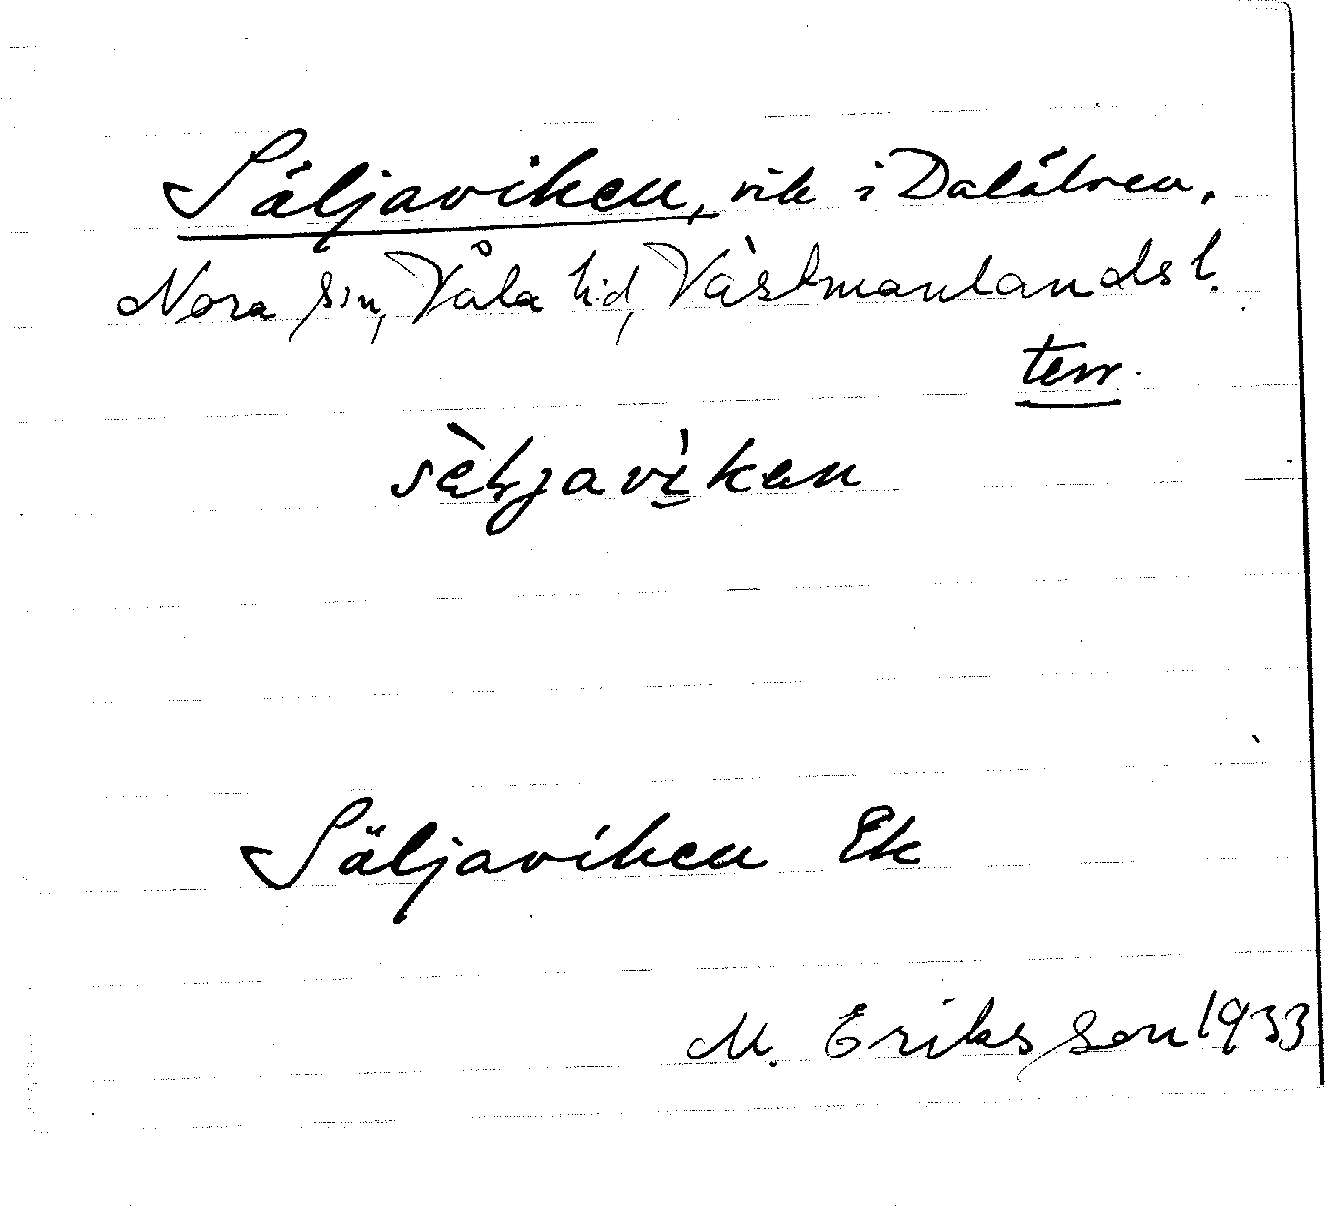 Säljaviken, vik i Dalälven,
Nora sn, Våla hd, Västmanlands l.
terr.
sèljavìkan
Säljaviken Ek
M. Eriksson 1933